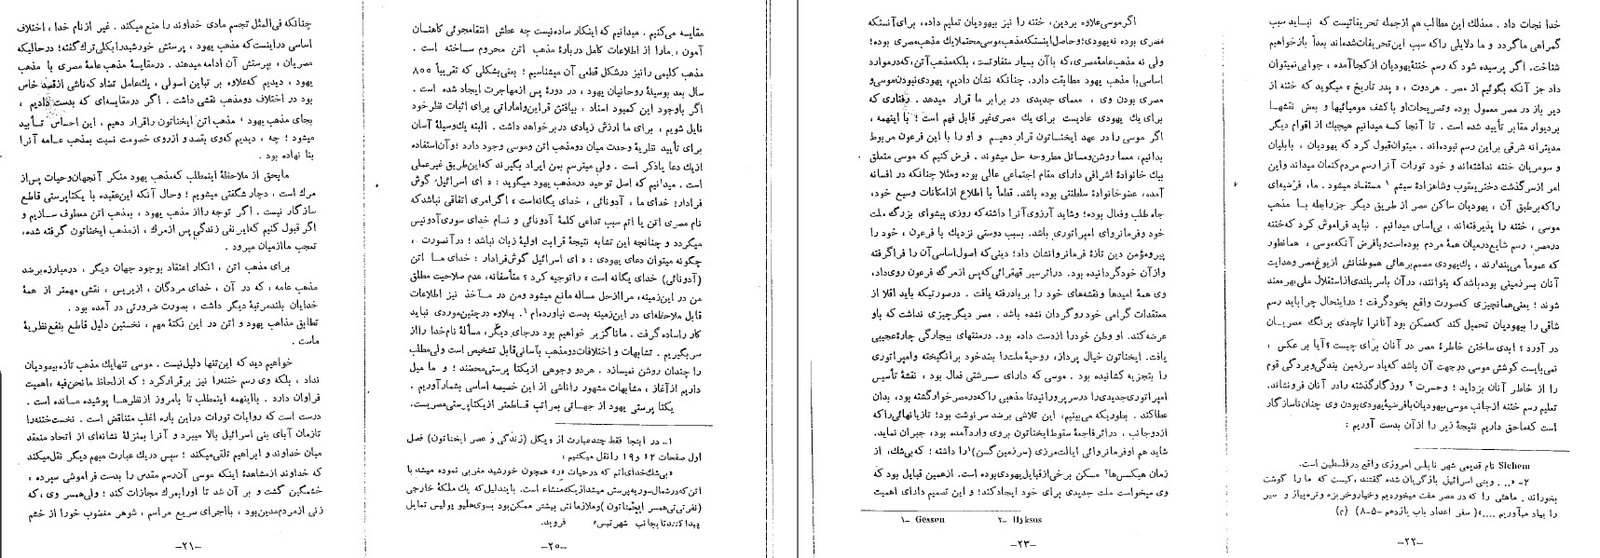 مقایسه میکنیم . میدانیم که اینکار ساده‌نیست چه عطش انتقامجوئی کاهنان
آمون ، مارا از اطلاعات کامل دربارهٔ مذهب اتن محروم ساخته است .
مذهب کلیمی را نیز درشکل قطعی آن میشناسیم ؛ یعنی‌بشکلی که تقریباً ۸۰۰
سال بعد بوسیلهٔ روحانیان یهود ، در دورهٔ پس ازمهاجرت ایجاد شده است .
اگر باوجود این کمبود اسناد ، بیافتن قراین‌واماراتی برای اثبات نظرخود
نایل شویم ، برای ما ارزش زیادی دربرخواهد داشت . البته یک‌وسیلهٔ آسان
برای تأیید نظریهٔ وحدت میان دومذهب اتن وموسی وجود دارد ؛ وآن‌استفاده
ازیک دعا یاذکر است . ولی میترسم بمن ایراد بگیرند که‌این‌طریق غیرعملی
است . میدانیم که اصل توحید درمذهب یهود میگوید : « ای اسرائیل؛ گوش
فرادار؛ خدای ما ، آدونائی ، خدای یگانه‌است » اگرامری اتفاقی نباشدکه
نام مصری اتن یا اتم سبب تداعی کلمهٔ آدونائی و نام خدای سوری آدونیس
میگردد و چنانچه این تشابه نتیجهٔ قرابت اولیهٔ زبان نباشد ؛ درآنصورت ،
چگونه میتوان دعای یهودی : « ای اسرائیل گوش‌فرادار ؛ خدای ما اتن
(آدونائی) خدای یگانه است » راتوجیه کرد ؟ متأسفانه، عدم صلاحیت مطلق
من در این‌زمینه، مراازحل مساله مانع میشود ومن در مآخذ نیز اطلاعات
قابل ملاحظه‌ای در این‌زمینه بدست نیاورده‌ام ۱. بعلاوه درچنین‌موردی نباید
کار راساده گرفت . ماناگزیر خواهیم بود درجای دیگر، مسألهٔ نام‌خدا رااز
سربگیریم . تشابهات و اختلافات‌دومذهب بآسانی‌قابل تشخیص است ولی‌مطلب
را چندان روشن نمیسازد . هردو وجوهی ازیکتا پرستی‌محضند ؛ و ما میل
داریم ازآغاز ، مشابهات مشهور راناشی از این خصیصه اساسی بشمارآوریم .
یکتا پرستی یهود از جهاتی بمراتب قاطعتر ازیکتاپرستی‌مصریست.
۱- در اینجا فقط چندعبارت از ویگل (زندگی و عصر ایخناتون) فصل
اول صفحات ۱۲ و ۱۹ را نقل میکنیم :
«بی‌شك‌خدای‌اتم که درحیات رع همچون خورشید مغربی نموده میشد با
اتن‌که‌درشمال‌سوریه‌پرستش میشدازیک‌منشاء است. بایندلیل‌که یك ملکهٔ خارجی
(نفرتی‌تی‌همسر ایخناتون)وملازمانش بیشتر ممکن‌بود بسوی‌هلیو پولیس تمایل
پیداکنندتا بجانب شهرتبس» فروید.
-۲۰-
چنانکه فی‌المثل تجسم مادی خداوند را منع میکند . غیر ازنام خدا ، اختلاف
اساسی دراینست‌که مذهب یهود ، پرستش خورشیدرابکلی‌ترك‌گفته؛ درحالیکه
مصریان ، بپرستش آن ادامه میدهند . درمقایسهٔ مذهب عامهٔ مصری با مذهب
یهود ، دیدیم که‌علاوه بر تباین اصولی ، یك‌عامل تضاد که‌ناشی ازقصد خاص
بود در اختلاف دومذهب نقشی داشت . اگر درمقایسه‌ای که بدست دادیم ،
بجای مذهب یهود ؛ مذهب اتن ایخناتون راقرار دهیم ، این احساس تأیید
میشود ؛ چه ، دیدیم که‌وی بقصد و ازروی خصومت نسبت بمذهب عامه آنرا
بنا نهاده بود .
مابحق از ملاحظهٔ اینمطلب که‌مذهب یهود منکر آنجهان‌وحیات پس‌از
مرك است ، دچار شگفتی میشویم ؛ وحال آنکه این‌عقیده با یکتاپرستی قاطع
سازگار نیست . اگر توجه رااز مذهب یهود ، بمذهب اتن معطوف سازیم و
اگر قبول کنیم که‌این نفی زندگی پس ازمرك ، ازمذهب ایخناتون گرفته شده،
تعجب ماازمیان میرود .
برای مذهب اتن ، انکار اعتقاد بوجود جهان دیگر ، درمبارزه برضد
مذهب عامه ، که در آن ، خدای مردگان ، ازیریس ، نقشی مهمتر از همهٔ
خدایان بلندمرتبهٔ دیگر داشت ، بصورت ضرورتی در آمده بود .
تطابق مذاهب یهود و اتن در این نکتهٔ مهم ، نخستین دلیل قاطع بنفع‌نظریهٔ
ماست .
خواهیم دید که این‌تنها دلیل‌نیست . موسی تنهایك مذهب تازه‌بیهودیان
نداد ، بلکه وی رسم ختنه‌را نیز برقرارکرد ؛ که ازلحاظ مانحن‌فیه ،اهمیت
فراوان دارد . بااینهمه اینمطلب تا بامروز ازنظرها پوشیده مانده است .
درست است که روایات تورات دراین باره اغلب متناقض است . نخست‌ختنه‌را
تازمان آبای بنی اسرائیل بالا میبرد و آنرا بمنزلهٔ نشانه‌ای از اتحاد منعقد
میان خداوند و ابراهیم تلقی‌میکند ؛ سپس دریك عبارت مبهم دیگر نقل‌میکند
که خداوند ازمشاهدهٔ اینکه موسی آن‌رسم مقدس را بدست فراموشی سپرده ،
خشمگین گشت و بر آن شد تا اورابمرك مجازات کند ؛ ولی‌همسر وی ،که
زنی ازمردم‌مدین‌بود ، بااجرای سریع مراسم ، شوهر مغضوب خودرا از خشم
-۲۱-
خدا نجات داد . معذلك این مطالب هم ازجمله تحریفاتیست که نباید سبب
گمراهی ماگردد و ما دلایلی راکه سبب این‌تحریفات‌شده‌اند بعداً بازخواهیم
شناخت. اگر پرسیده شود که رسم ختنهٔ‌یهودیان ازکجاآمده ، جوابی‌نمیتوان
داد جز آنکه بگوئیم از مصر . هردوت ، « پدر تاریخ » میگوید که ختنه از
دیر باز در مصر معمول بوده وتصریحات‌او باکشف مومیائیها و بعض نقشها
بردیوار مقابر تأیید شده است . تا آنجا که میدانیم هیچیك از اقوام دیگر
مدیترانه شرقی براین رسم نبوده‌اند. میتوان‌قبول کرد که یهودیان ، بابلیان
و سومریان ختنه نداشته‌اند و خود تورات آنرا رسم مردم‌کنعان میداند واین
امر ازسرگذشت دختریعقوب وشاهزادهٔ سیشم ۱ مستفاد میشود . ما، فرضیه‌ای
راکه‌برطبق آن ، یهودیان ساکن مصر ازطریق دیگر جزرابطه با مذهب
موسی ، ختنه را پذیرفته‌اند ، بی‌اساس میدانیم . نباید فراموش کرد که‌ختنه
درمصر، رسم شایع‌درمیان همهٔ مردم بوده‌است‌وبافرض آنکه‌موسی ، همانطور
که عموماً می‌پندارند ، یك‌یهودی مصمم‌برهائی هموطنانش ازیوغ‌مصر وهدایت
آنان بسرزمینی بوده‌باشدکه بتوانند، درآن باسربلندی‌ازاستقلال ملی‌بهرمند
شوند ؛ یعنی‌همانچیزی که‌صورت واقع بخودگرفت ؛ دراینحال چراباید رسم
شاقی را بیهودیان تحمیل کند که‌ممکن بود آنانرا تاحدی برنگ مصریان
در آورد ؟ ابدی‌ساختن خاطرهٔ مصر در آنان برای چیست؟ آیا بر عکس ،
نمی‌بایست کوشش موسی درجهت آن باشد که‌یاد سرزمین بندگی‌وبردگی قوم
را از خاطر آنان بزداید ؛ وحسرت ۲ روزگارگذشته رادر آنان فرونشاند.
تعلیم رسم ختنه ازجانب موسی‌بیهودیان بافرضیهٔ‌یهودی‌بودن وی چنان‌ناسازگار
است که‌ماحق داریم نتیجهٔ زیر را ازآن بدست آوریم :
Sichem نام قدیمی شهر نابلس امروزی واقع درفلسطین است.
۲- «... وبنی اسرائیل بازگریان شده گفتند، کیست که ما را گوشت
بخوراند. ماهئی را که در مصر مفت میخوردیم وخیاروخربزه وتره‌وپیاز و سیر
را بیاد میآوریم ....»( سفر اعداد باب یازدهم -۵-۸) (م)
-۲۲-
اگرموسی‌علاوه بردین، ختنه را نیز بیهودیان تعلیم داده، برای‌آنستکه
مصری بوده نه‌یهودی؛وحاصل‌اینستکه‌مذهب‌موسی‌محتملایك مذهب‌مصری بوده؛
ولی نه مذهب‌عامهٔ‌مصری،که باآن بسیار متفاوتست، بلکه‌مذهب‌آتن،که‌درموارد
اساسی‌با مذهب یهود مطابقت دارد. چنانکه نشان دادیم، یهودی‌نبودن‌موسی‌و
مصری بودن وی ، معمای جدیدی در برابر ما قرار میدهد . رفتاری که
برای یك یهودی عادیست برای یك مصری‌غیر قابل فهم است ؛ با اینهمه ،
اگر موسی را در عهد ایخناتون قرار دهیم و او را با این فرعون مربوط
بدانیم، معما روشن‌ومسائل مطروحه حل میشوند . فرض کنیم که موسی متعلق
بیك خانوادهٔ اشرافی دارای مقام اجتماعی عالی بوده ومثلا چنانکه در افسانه
آمده، عضوخانوادهٔ سلطنتی بوده باشد. قطعاً با اطلاع ازامکانات وسیع خود،
جاه طلب وفعال بوده؛ وشاید آرزوی‌آنرا داشته‌که روزی پیشوای بزرگ ملت
خود وفرمانروای امپراتوری باشد. بسبب دوستی نزدیك با فرعون ، خود را
پیرومؤمن دین تازهٔ فرمانروانشان داد؛ دینی‌که اصول‌اساسی‌آن را فراگرفته
وازآن خودگردانیده بود. دراثرسیر قهقرائی‌که پس‌ازمرگ فرعون روی‌داد،
وی همهٔ امیدها ونقشه‌های خود را بربادرفته یافت . درصورتیکه باید اقلا از
معتقدات گرامی خودروگردان نشده باشد. مصر دیگرچیزی نداشت که باو
عرضه‌کند. او وطن خودرا ازدست داده بود. درمنتهای بیچارگی چارهٔ‌عجیبی
یافت. ایخناتون خیال پرداز، روحیهٔ‌ملت‌را بضدخود برانگیخته وامپراتوری
را بتجزیه کشانیده بود . موسی که دارای سرشتی فعال بود ، نقشهٔ تأسیس
امپراتوری‌جدیدی‌را درسرپرورانیدتا مذهبی راکه‌درمصرخوارگشته بود، بدان
عطاکند. بطوریکه می‌بینیم، این تلاشی برضد سرنوشت بود؛ تازیانهائی‌راکه
ازدوجانب ، دراثرفاجعهٔ سقوط‌ایخناتون بروی واردآمده بود، جبران نماید.
شاید هم اوفرمانروائی ایالت‌مرزی (سرزمین‌گسن)۱را داشته؛ که‌بی‌شك، از
زمان هیکسس‌ها۲ مسکن برخی‌ازقبایل‌یهودی‌بوده است. ازهمین قبایل بود که
وی میخواست ملت جدیدی برای خود ایجادکند؛ و این تصمیم دارای اهمیت
۱- Gessen ۲- Hyksos
-۲۳-